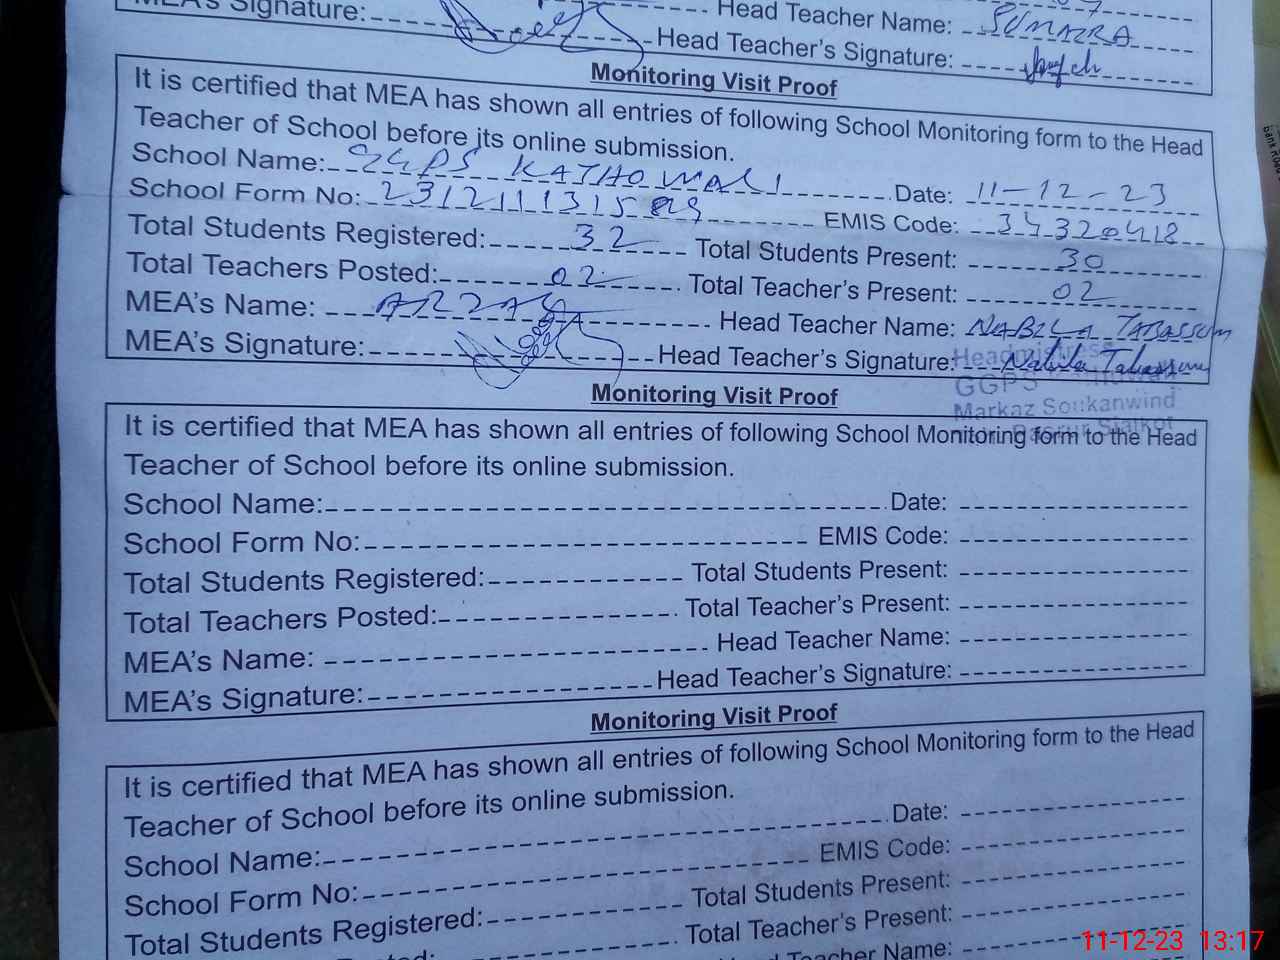 MEA's Signature: Head Teacher Name: SUMAIRA
Head Teacher's Signature:
Monitoring Visit Proof
It is certified that MEA has shown all entries of following School Monitoring form to the Head
Teacher of School before its online submission.
School Name: GGPS KATHOWALI Date: 11-12-23
School Form No: EMIS Code: 34320418
Total Students Registered: 32 Total Students Present: 30
Total Teachers Posted: 02 Total Teacher's Present: 02
MEA's Name: Head Teacher Name: NABILA TABASSUM
MEA's Signature: Head Teacher's Signature: Nabila Tabassum
Headmistress
GGPS
Markaz Soukanwind
Pasrur Sialkot
Monitoring Visit Proof
It is certified that MEA has shown all entries of following School Monitoring form to the Head
Teacher of School before its online submission.
School Name: Date:
School Form No: EMIS Code:
Total Students Registered: Total Students Present:
Total Teachers Posted: Total Teacher's Present:
MEA's Name: Head Teacher Name:
MEA's Signature: Head Teacher's Signature:
Monitoring Visit Proof
It is certified that MEA has shown all entries of following School Monitoring form to the Head
Teacher of School before its online submission.
School Name: Date:
School Form No: EMIS Code:
Total Students Registered: Total Students Present:
Total Teacher's Present:
Teacher Name:
11-12-23 13:17